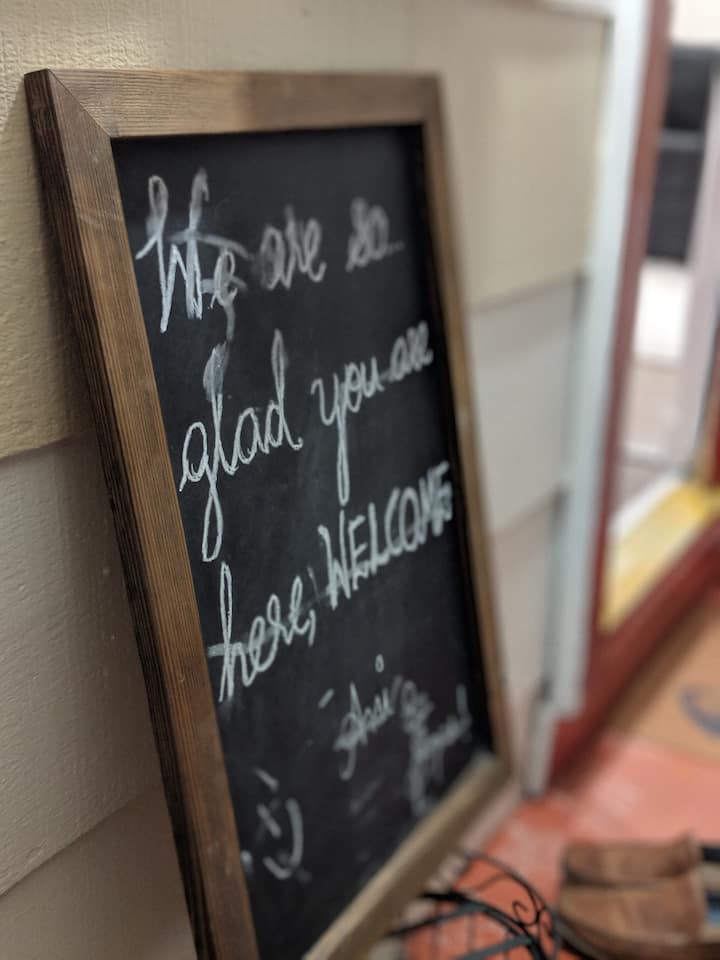 We are so...
glad you are
here, WELCOME